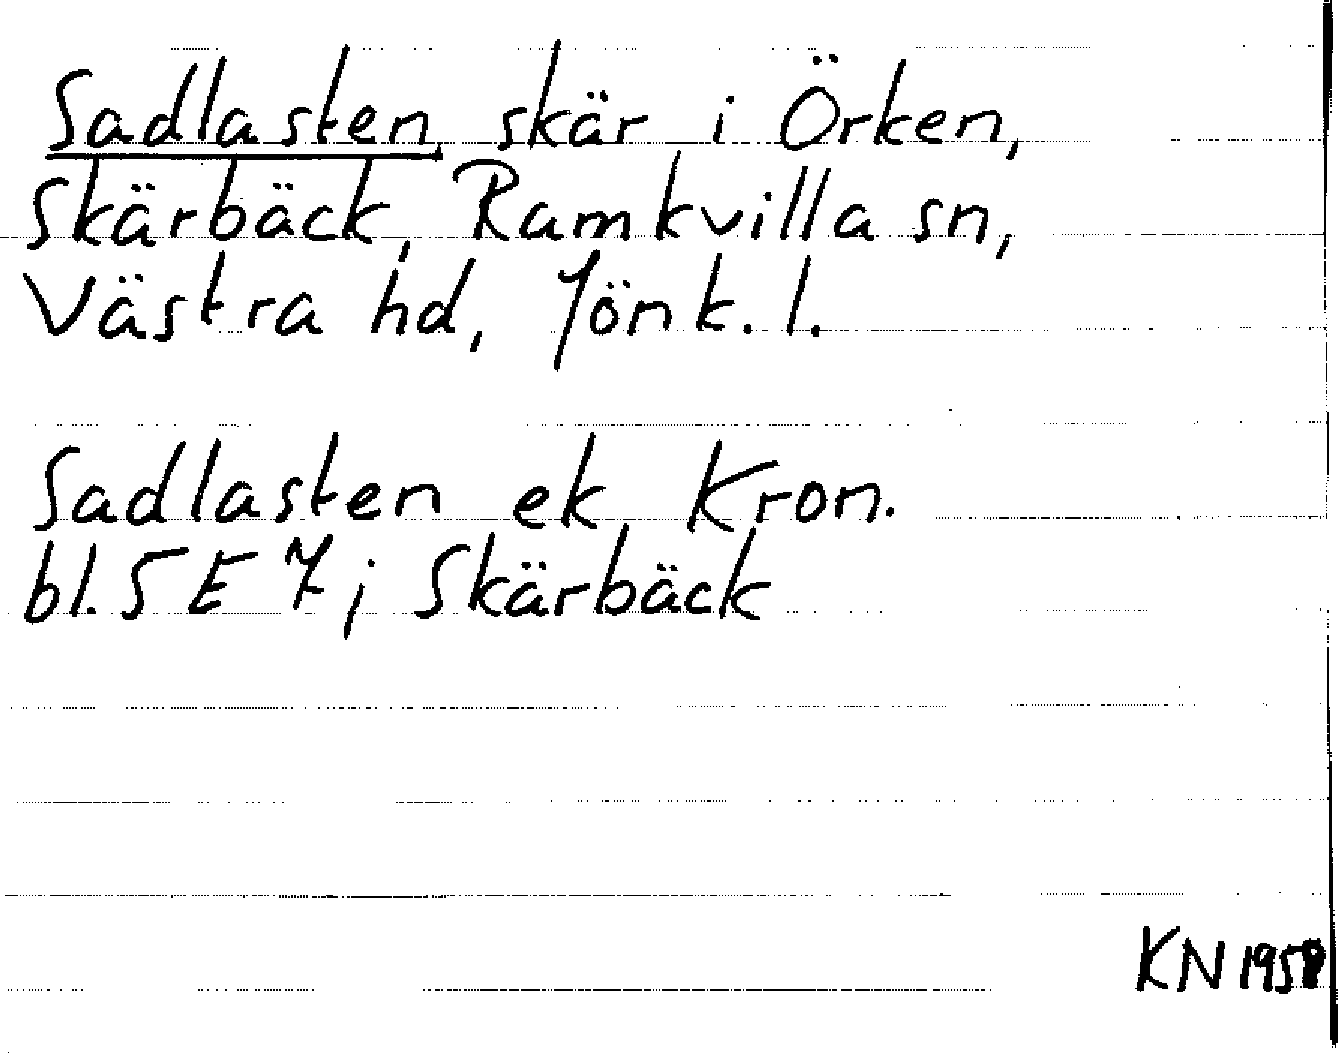 Sadlasten, skär i Örken,
Skärbäck, Ramkvilla sn,
Västra hd, Jönk. l.
Sadlasten ek. Kron.
bl. 5 E 7; Skärbäck
KN 1958